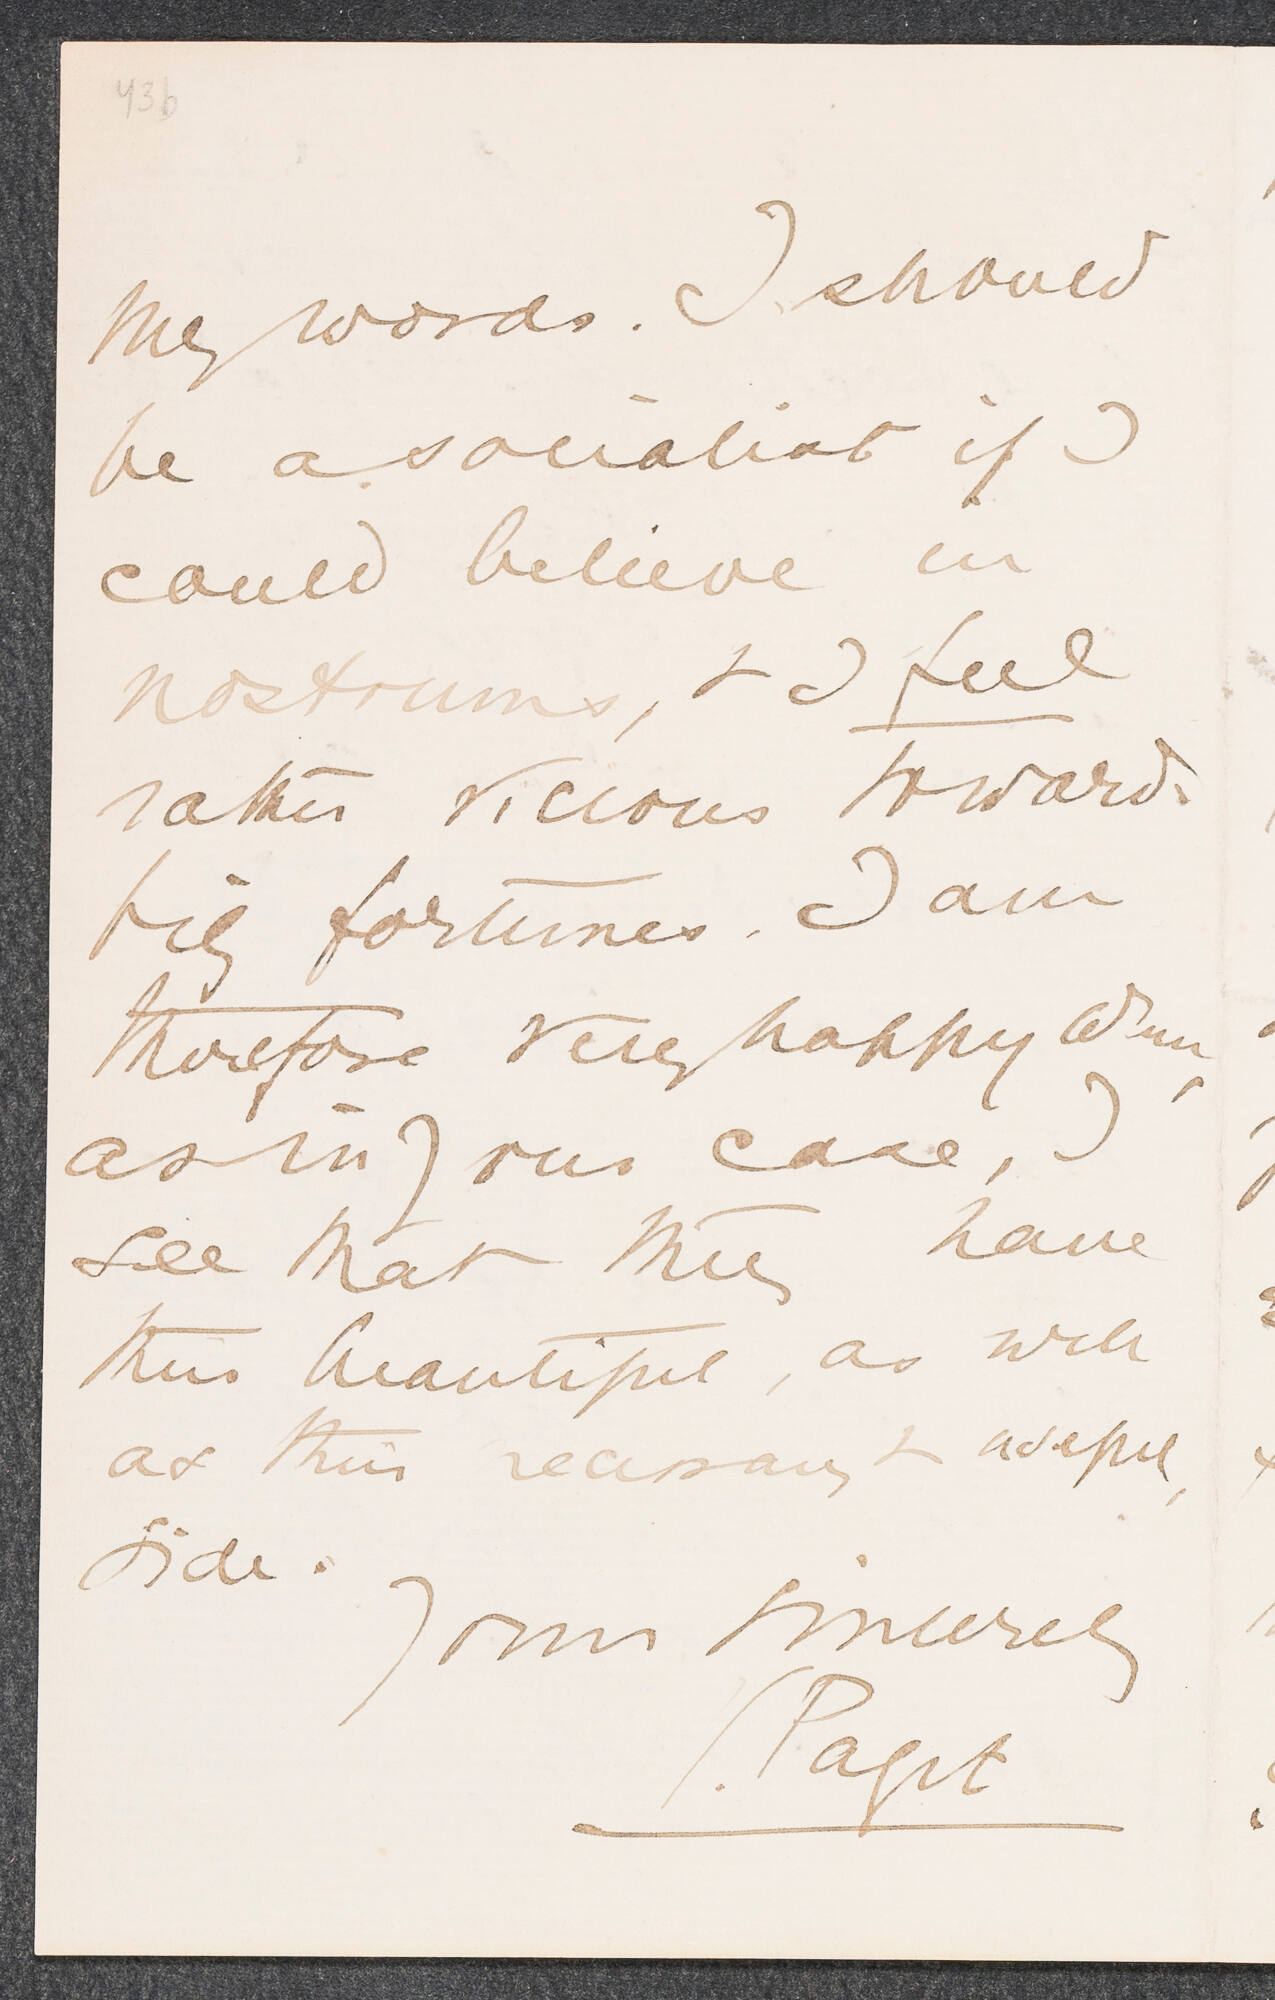 43b
my words. I should
be a socialist if I
could believe in
nostrums, & I feel
rather vicious towards
big fortunes. I am
therefore very happy when,
as in your case, I
see that they have
their beautiful, as well
as their necessary & useful,
side.
Yours sincerely
V. Paget